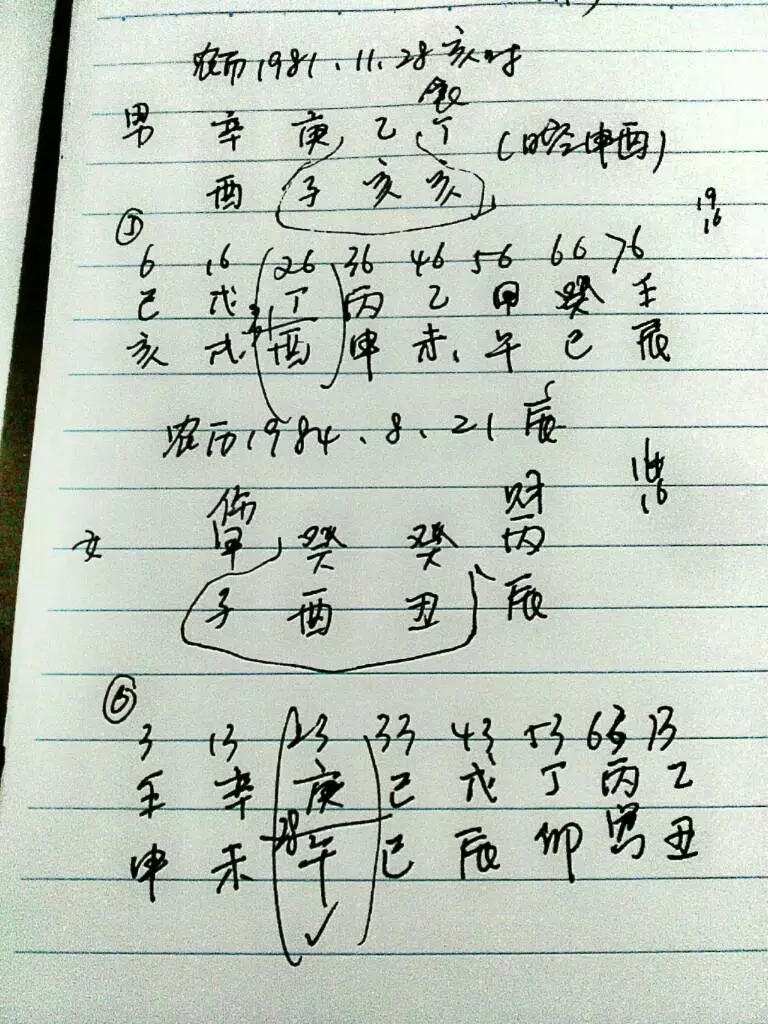 农历1981、11、28亥时
食
男 辛 庚 乙 丁 (时空申酉)
酉 子 亥 亥
19
16
①
6 16 26 36 46 56 66 76
己 戊 丁 丙 乙 甲 癸 壬
亥 戌 31 酉 申 未、 午 巳 辰
农历1984、8、21 辰
伤 财
16
女 甲 癸 癸 丙
子 酉 丑 辰
⑥
3 13 23 33 43 53 63 73
壬 辛 庚 己 戊 丁 丙 乙
申 未 28 午 巳 辰 卯 寅 丑
✓